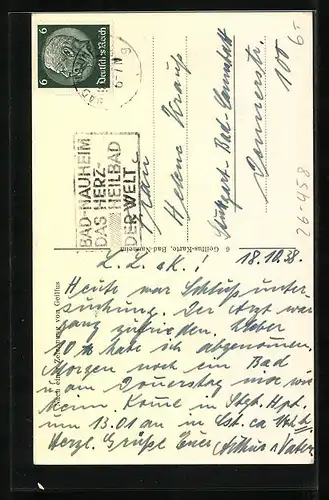 6 Deutsches Reich 6
BAD-NAUHEIM
DAS HERZ-
HEILBAD
DER WELT
Frau
Helene Kraus
Stuttgart-Bad-Cannstatt
Sonnenstr. 100
6-
26458
6 Geilfus-Karte, Bad-Nauheim
(Nach einer Zeichnung von Geilfus)
18.10.38.
L. L. u K.!
Heute war Schlußunter-
suchung. Der Arzt war
ganz zufrieden. Ueber
habe ich abgenommen.
Morgen noch ein Bad
u. am Donnerstag
heim. Komme in Stgt. Hpt.
um 13.01 an in Cst. ca
Herzl. Grüße Euer Arthur u Vater